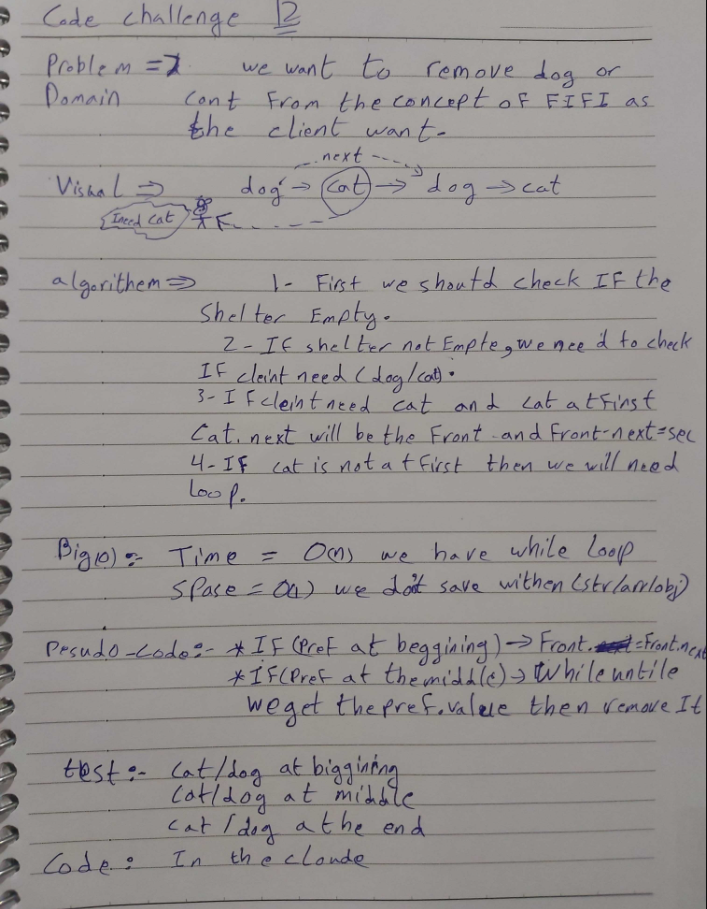 Code challenge 12
Problem => we want to remove dog or
Domain cont From the concept of FIFI as
the client want.
next
Visual => dog -> cat -> dog -> cat
I need cat F
algorithem => 1- First we should check IF the
Shelter Empty.
2- IF shelter not Empte, we need to check
IF cleint need (dog/cat).
3- IF cleint need cat and cat at First
Cat.next will be the Front and Front.next=sec
4- IF cat is not at First then we will need
Loop.
Big(o) :- Time = O(n) we have while loop
SPase = O(1) we don't save withen (str/arr/obj)
Pesudo-code:- * IF (Pref at beggining) -> Front =Front.next
* IF (Pref at the middle) -> While untile
we get the pref.value then remove It
test :- cat/dog at biggining
cat/dog at middle
cat/dog at he end
Code : In the cloude